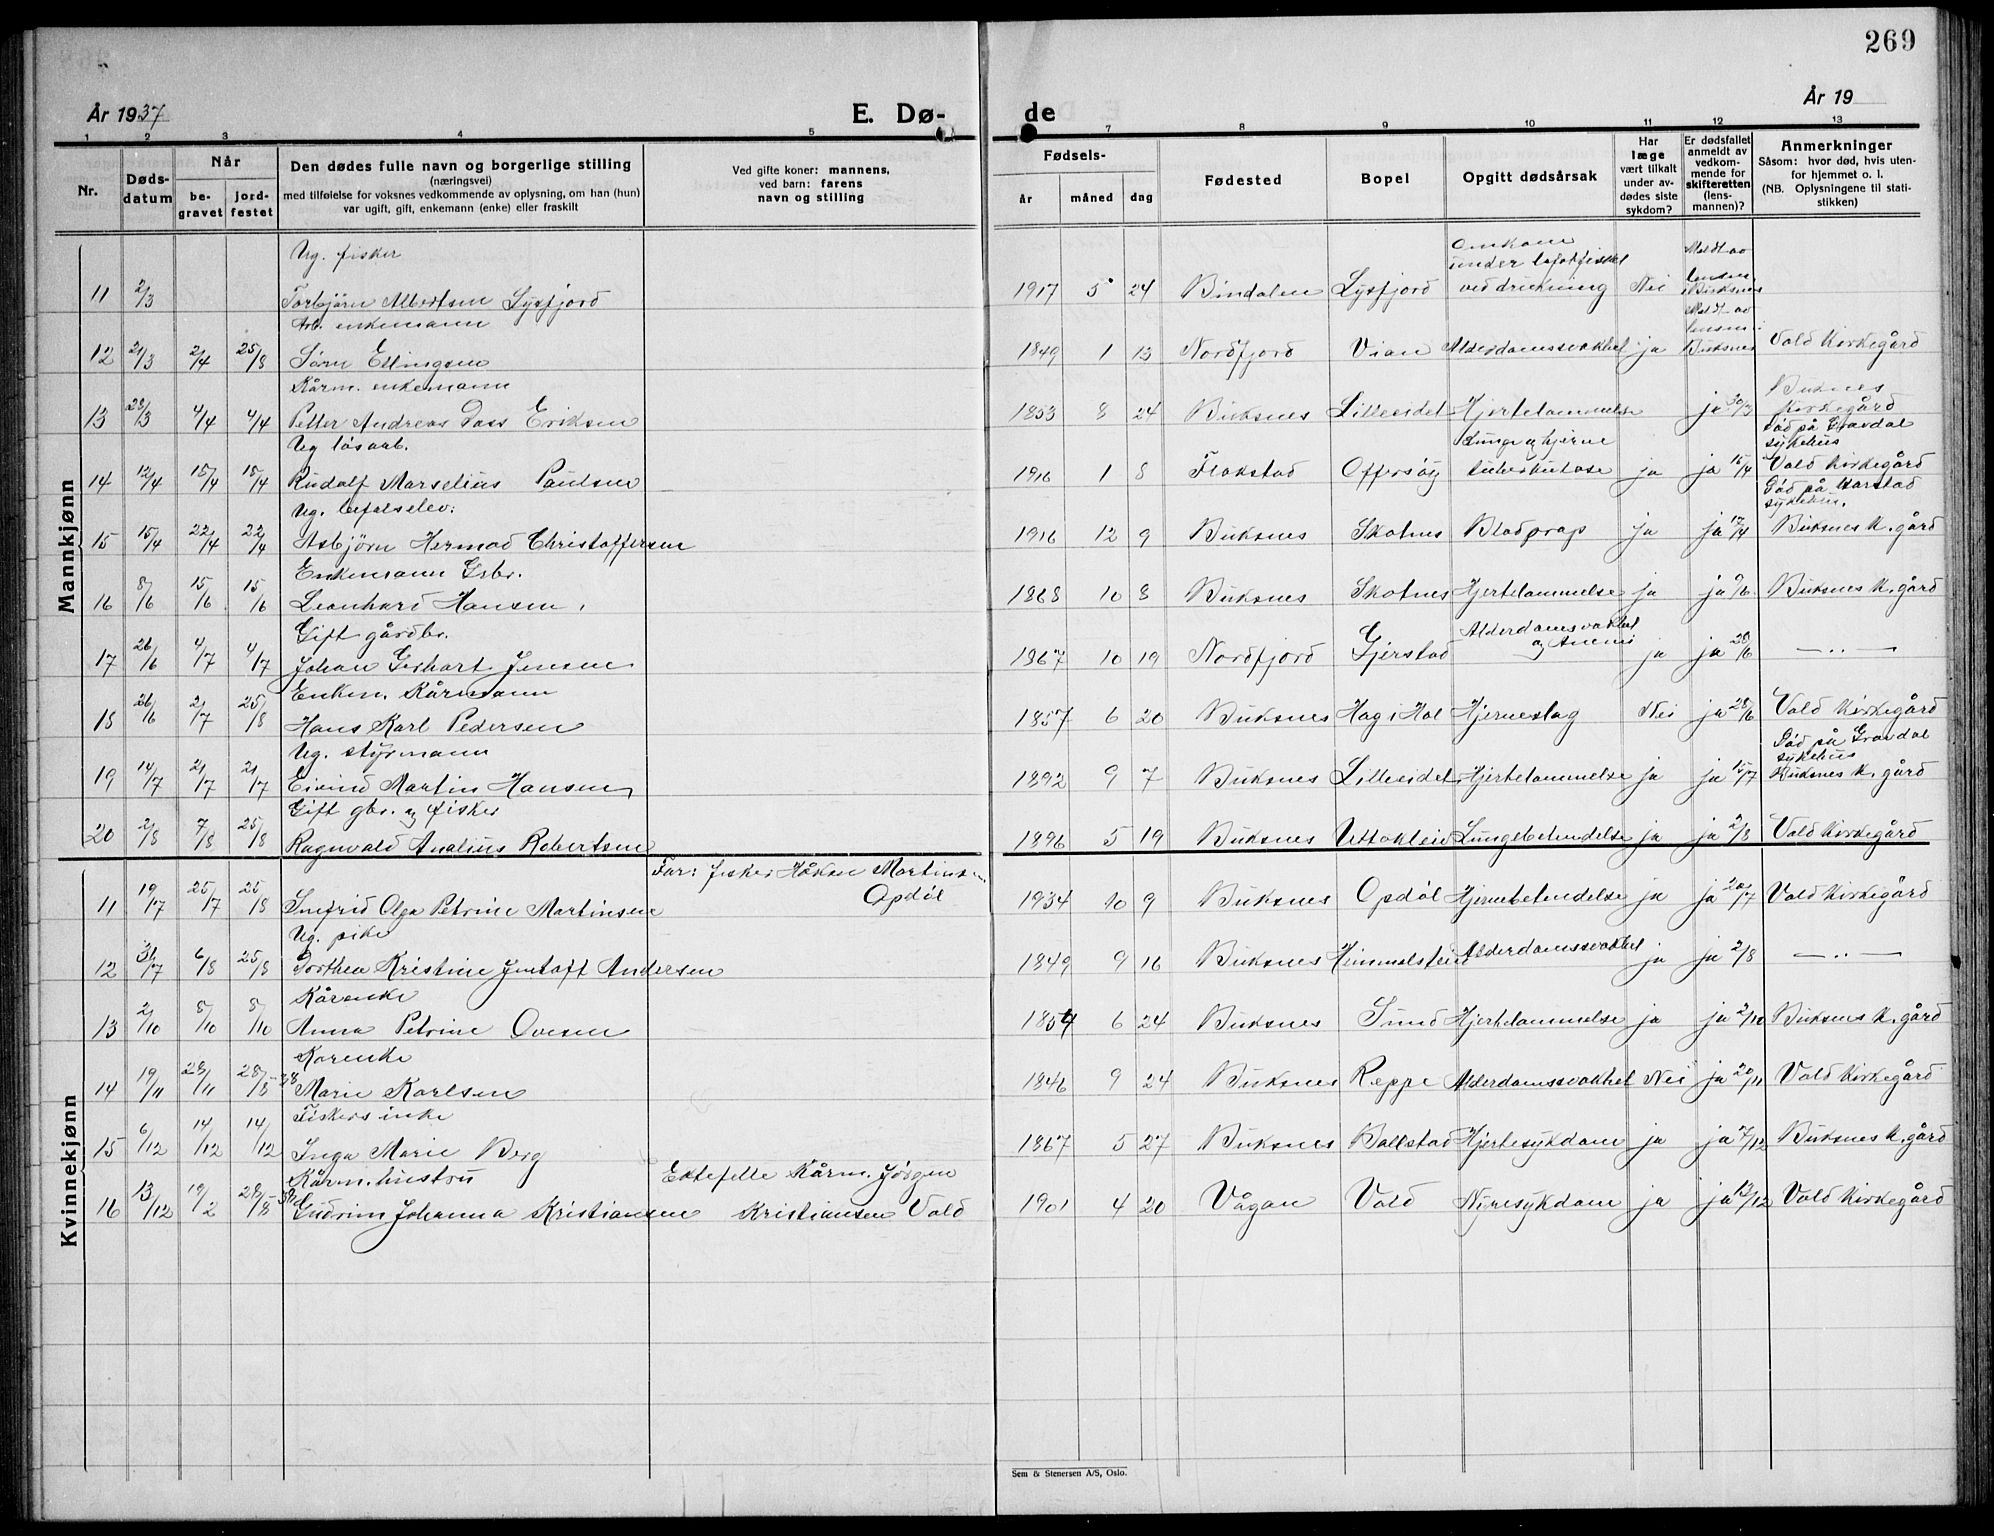 269
År 1937
E. Dø-
de
År 19
1 2 3 4 5 7 8 9 10 11 12 13
Nr.
Døds-
datum
Når
be-
gravet
jord-
festet
Den dødes fulle navn og borgerlige stilling
(næringsvei)
med tilføielse for voksnes vedkommende av oplysning, om han (hun)
var ugift, gift, enkemann (enke) eller fraskilt
Ved gifte koner: mannens,
ved barn: farens
navn og stilling
Fødsels-
år måned dag
Fødested
Bopel
Opgitt dødsårsak
Har
læge
vært tilkalt
under av-
dødes siste
sykdom?
Er dødsfallet
anmeldt av
vedkom-
mende for
skifteretten
(lens-
mannen)?
Anmerkninger
Såsom: hvor død, hvis uten-
for hjemmet o. l.
(NB. Oplysningene til stati-
stikken)
Mannkjønn
Ug. fisker
Omkom
under lofotfisket
Meldt av
lensm.
11 2/3 Torbjörn Albertsen Lysfjord 1917 5 24 Bindalen Lysfjord ved drukning Nei Buksnes
Arb. enkemann
Meldt av
lensm. i
12 21/3 2/4 25/8 Sörn Ellingsen 1849 1 13 Nordfjord Vian Alderdomssvakhet ja Buksnes Vold Kirkegård
Kårm. enkemann
Buknes
13 28/3 4/4 4/4 Petter Andreas Dass Eriksen 1853 8 24 Buksnes Lilleeidet Hjertelammelse ja 30/3 Kirkegård
Ug. løsarb.
Lunge og hjerne
Död på Gravdal
sykehus
14 12/4 18/4 18/4 Rudolf Marselius Paulsen 1916 1 8 Flakstad Offersøy tuberkulose ja ja 15/4 Vold Kirkegård
Ug. befalselev.
Död på Harstad
sykehus.
15 15/4 22/4 22/4 Asbjörn Hermod Christoffersen 1916 12 9 Buksnes Skotnes Blodprop ja ja 17/4 Buksnes K. gård
Enkemann Gsbr.
16 8/6 15/6 15/6 Leonhard Hansen 1868 10 8 Buksnes Skotnes Hjertelammelse ja ja 9/6 Buksnes K. gård
Gift gårdbr.
Alderdomssvakhet
17 26/6 4/7 4/7 Johan Gerhart Jensen 1867 10 19 Nordfjord Gjerstad og Anemi ja ja 28/6 — ·· —
Enkem. Kårmann
18 26/6 2/7 25/8 Hans Karl Pedersen 1857 6 20 Buksnes Hag i Hol Hjerneslag Nei ja 28/6 Vold Kirkegård
Ug. styrmann
Död på Gravdal
sykehus
19 14/7 21/7 21/7 Eivind Martin Hansen 1892 9 7 Buksnes Lilleeidet Hjertelammelse ja ja 15/7 Buksnes K. gård
Gift gbr. og fisker
20 2/8 7/8 25/8 Ragnvald Analius Robertsen 1896 5 19 Buksnes Uttakleiv Lungebetendelse ja ja 2/8 Vold Kirkegård
Kvinnekjønn
Far: fisker Håkon Martinsen
Opdöl
11 19/7 25/7 25/8 Ingfrid Olga Petrine Martinsen 1934 10 9 Buksnes Opdöl Hjernebetendelse ja ja 20/7 Vold Kirkegård
Ug. pike
12 31/7 6/8 25/8 Dorthea Kristine Jentoft Andersen 1849 9 16 Buksnes Himmelstein Alderdomssvakhet ja ja 2/8 — ·· —
Kårenke
13 2/10 8/10 8/10 Anna Petrine Ovesen 1854 6 24 Buksnes Sund Hjertelammelse ja ja 2/10 Buksnes K. gård
Kårenke
14 19/11 28/11 28/8-38 Marie Karlsen 1846 9 24 Buksnes Reppe Alderdomssvakhet Nei ja 20/11 Vold Kirkegård
Fiskers enke
15 6/12 14/12 14/12 Inga Marie Berg 1867 5 27 Buksnes Ballstad Hjertesykdom ja ja 7/12 Buksnes K. gård
Kårm. hustru
Ektefelle Kårm. Jörgen
16 13/12 19/2 28/8-38 Gudrun Johanna Kristiansen Kristiansen Vold 1901 4 20 Vågan Vold Nyresykdom ja ja 13/12 Vold Kirkegård
Sem & Stenersen A/S, Oslo.